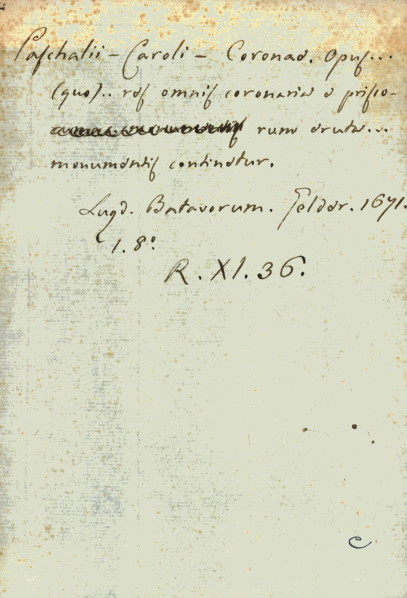 Paschalii - Caroli - Coronae. Opus...
(quo).. res omnis coronaria e prisco-
rum eruta...
monumentis continetur.
Lugd. Batavorum. Felder. 1671.
1. 8.º
R. XI. 36.
C